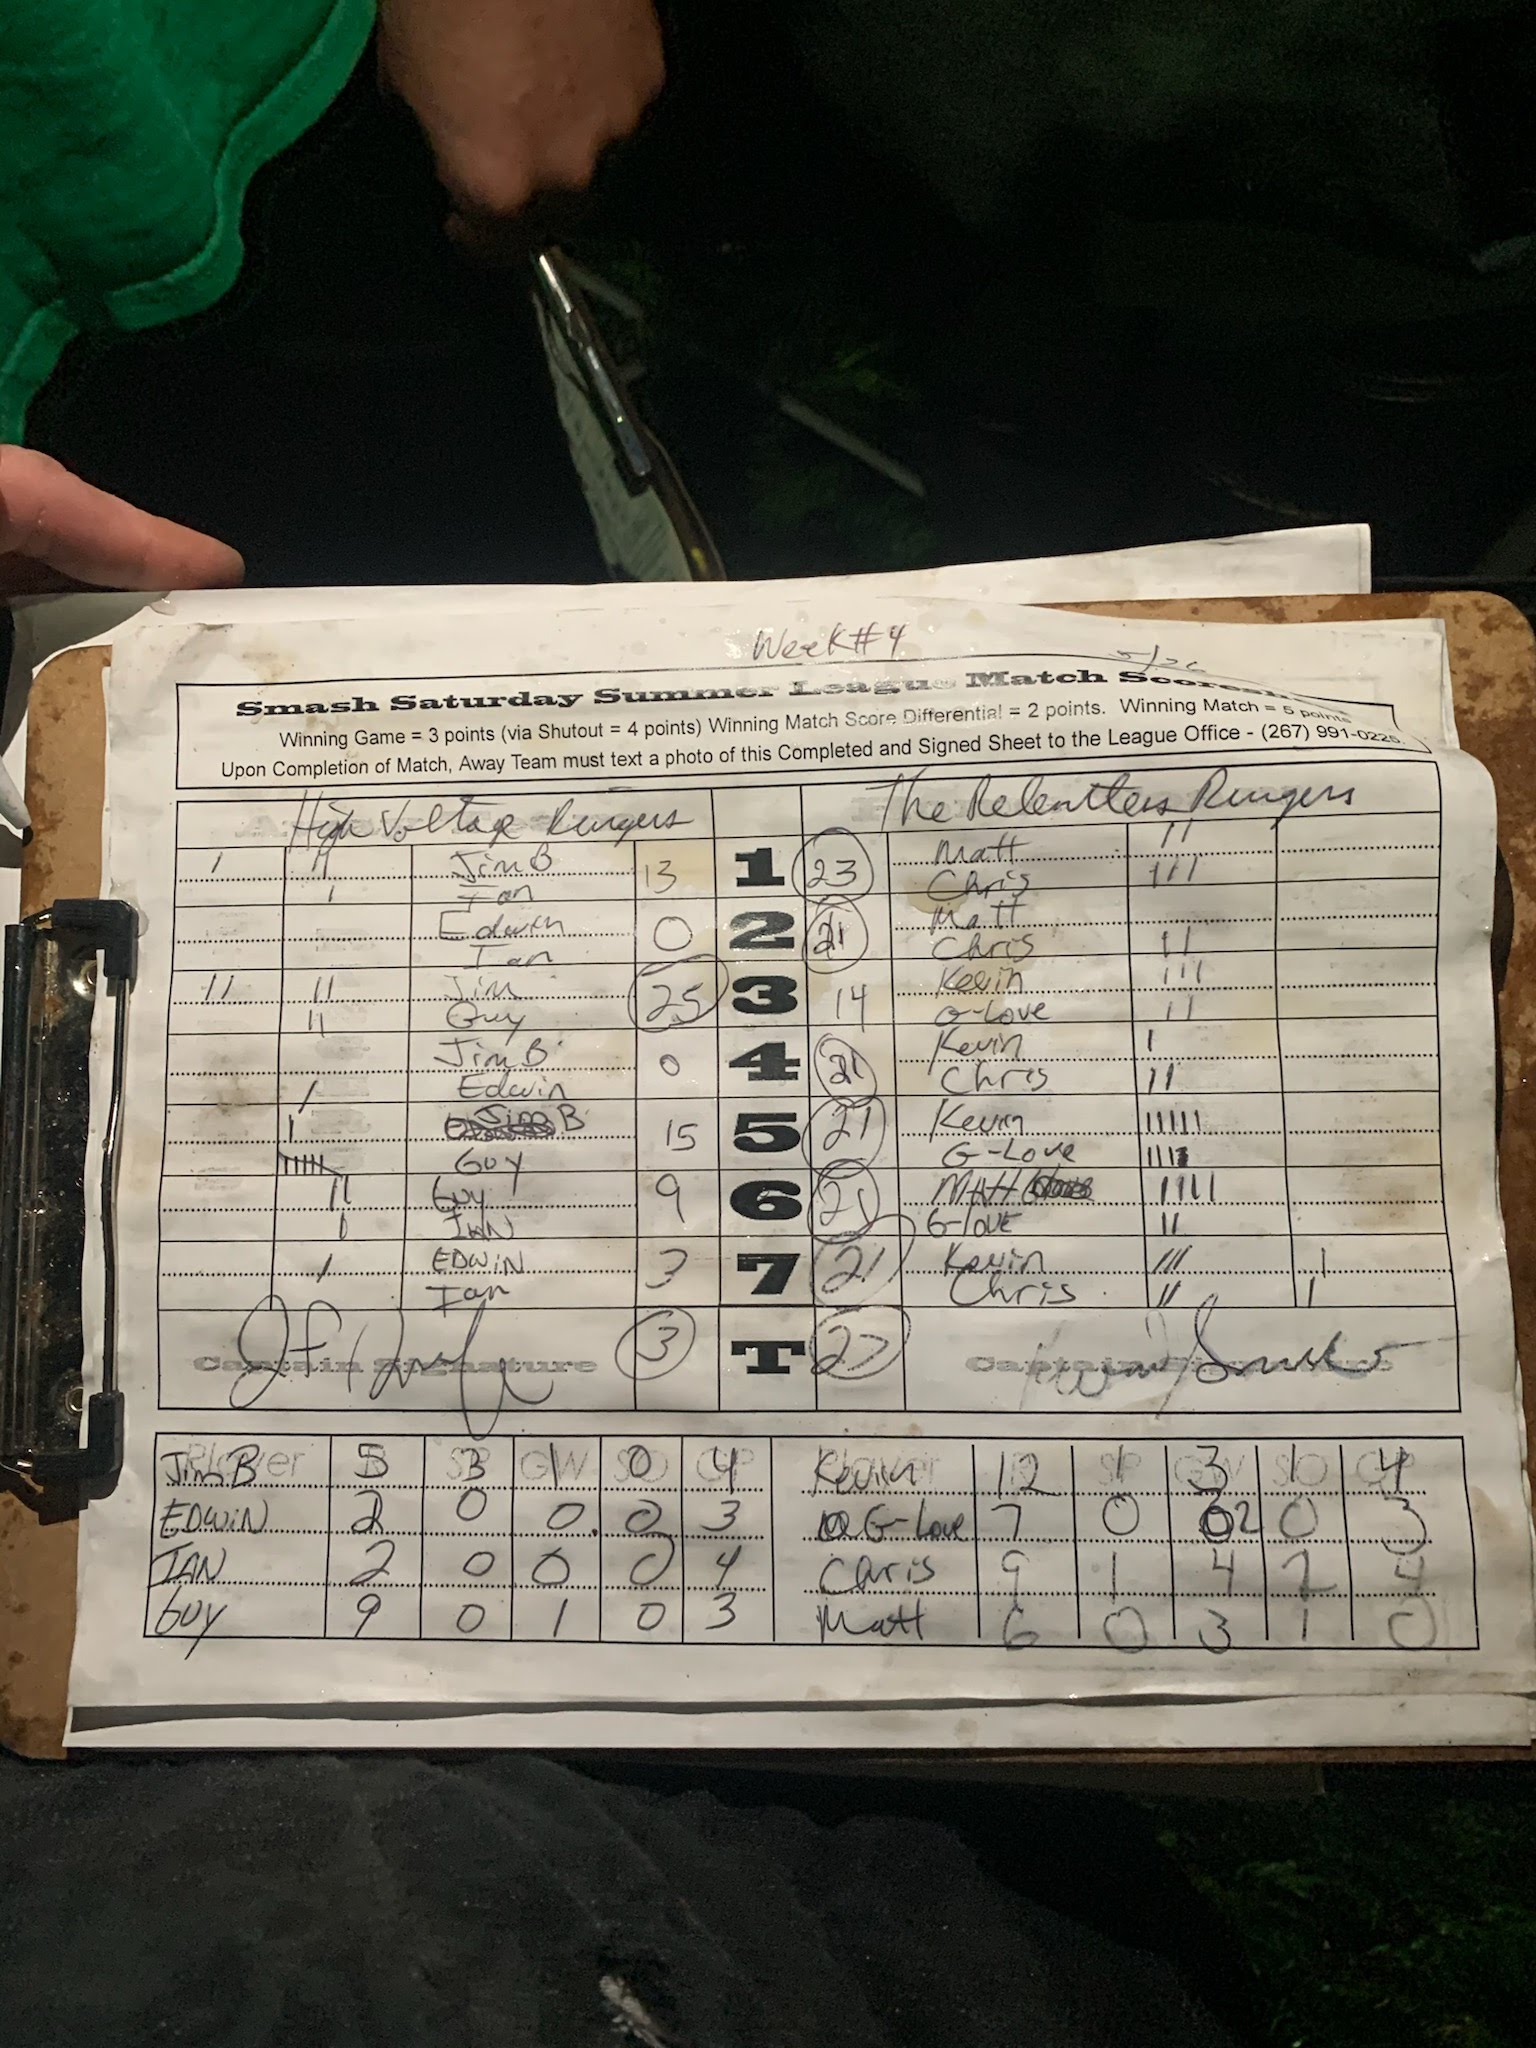 Week #4
5/26
Smash Saturday Summer League Match Scoresh
Winning Game = 3 points (via Shutout = 4 points) Winning Match Score Differential = 2 points. Winning Match = 5 points
Upon Completion of Match, Away Team must text a photo of this Completed and Signed Sheet to the League Office - (267) 991-0225.
High Voltage Ringers The Relentless Ringers
Jim B 13 1 23 Matt
Ian Chris
Edwin 0 2 21 Matt
Ian Chris
Jim 25 3 14 Kevin
Guy G-Love
Jim B 0 4 21 Kevin
Edwin Chris
Jim B 15 5 21 Kevin
Guy G-Love
Guy 9 6 21 Matt
IAN G-LOVE
EDWIN 3 7 21 Kevin
Ian Chris
Captain Signature 3 T 27 Captain Signature
Jim B 5 3 1 0 4 Kevin 12 1 3 1 4
EDWIN 2 0 0 0 3 G-Love 7 0 2 0 3
IAN 2 0 0 0 4 Chris 9 1 4 2 4
GUY 9 0 1 0 3 Matt 6 0 3 1 0